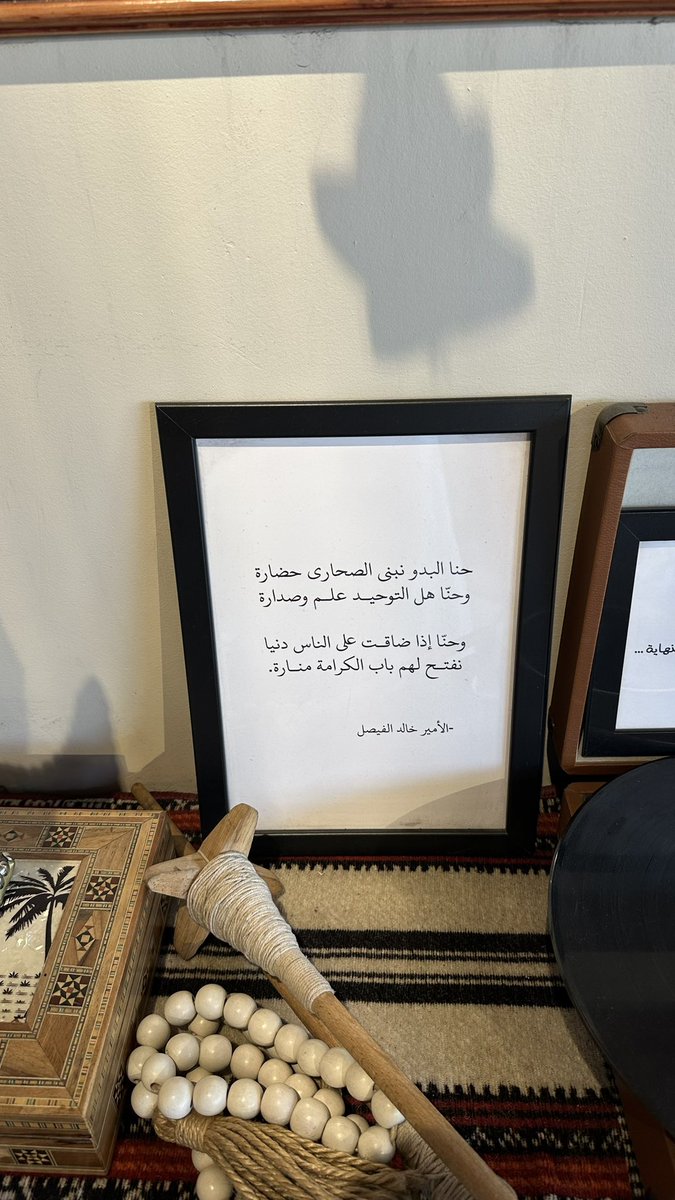 حنا البدو نبنى الصحارى حضارة
وحنّا هل التوحيـد علـم وصدارة
وحنّا إذا ضاقـت على الناس دنيا
نفتـح لهم باب الكرامة منـارة.
-الأمير خالد الفيصل
نهاية ...